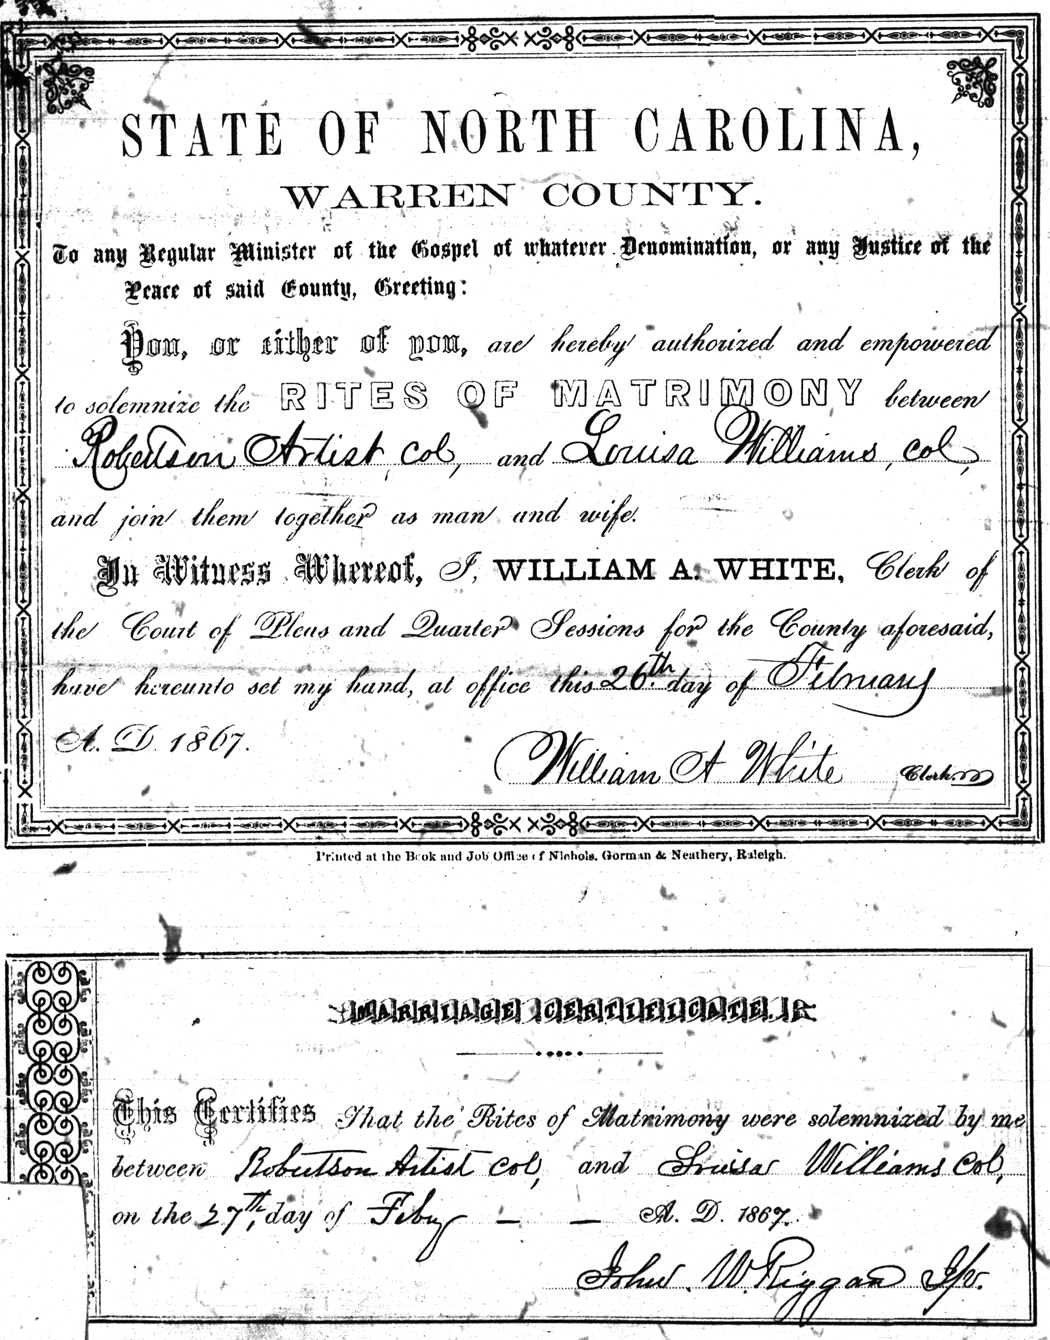 STATE OF NORTH CAROLINA,
WARREN COUNTY.
To any Regular Minister of the Gospel of whatever Denomination, or any Justice of the
Peace of said County, Greeting:
You, or either of you, are hereby authorized and empowered
to solemnize the RITES OF MATRIMONY between
Robertson Artist, col, and Louisa Williams, col,
and join them together as man and wife.
In Witness Whereof, I, WILLIAM A. WHITE, Clerk of
the Court of Pleas and Quarter Sessions for the County aforesaid,
have hereunto set my hand, at office this 26th day of February
A. D. 1867.
William A White Clerk
Printed at the Book and Job Office of Nichols, Gorman & Neathery, Raleigh.
MARRIAGE CERTIFICATE.
This Certifies That the Rites of Matrimony were solemnized by me
between Robertson Artist col, and Louisa Williams col,
on the 27th, day of Feby — — A. D. 1867.
John W. Riggan J.p.